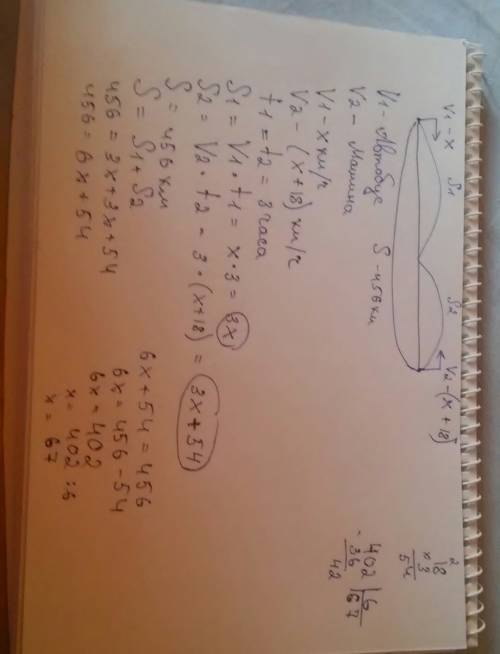 V1 - x S1 S2 V2 - (x + 18)
S - 456 км
V1 - Автобус
V2 - Машина
V1 - x км/ч
V2 - (x + 18) км/ч
t1 = t2 = 3 часа
S1 = V1 · t1 = x · 3 = 3x
S2 = V2 · t2 - 3 · (x + 18) = 3x + 54
S = 456 км
S = S1 + S2
456 = 3x + 3x + 54
456 = 6x + 54
6x + 54 = 456
6x = 456 - 54
6x = 402
x = 402 : 6
x = 67
2
18
x 3
54
402 | 6
- 36 | 67
42